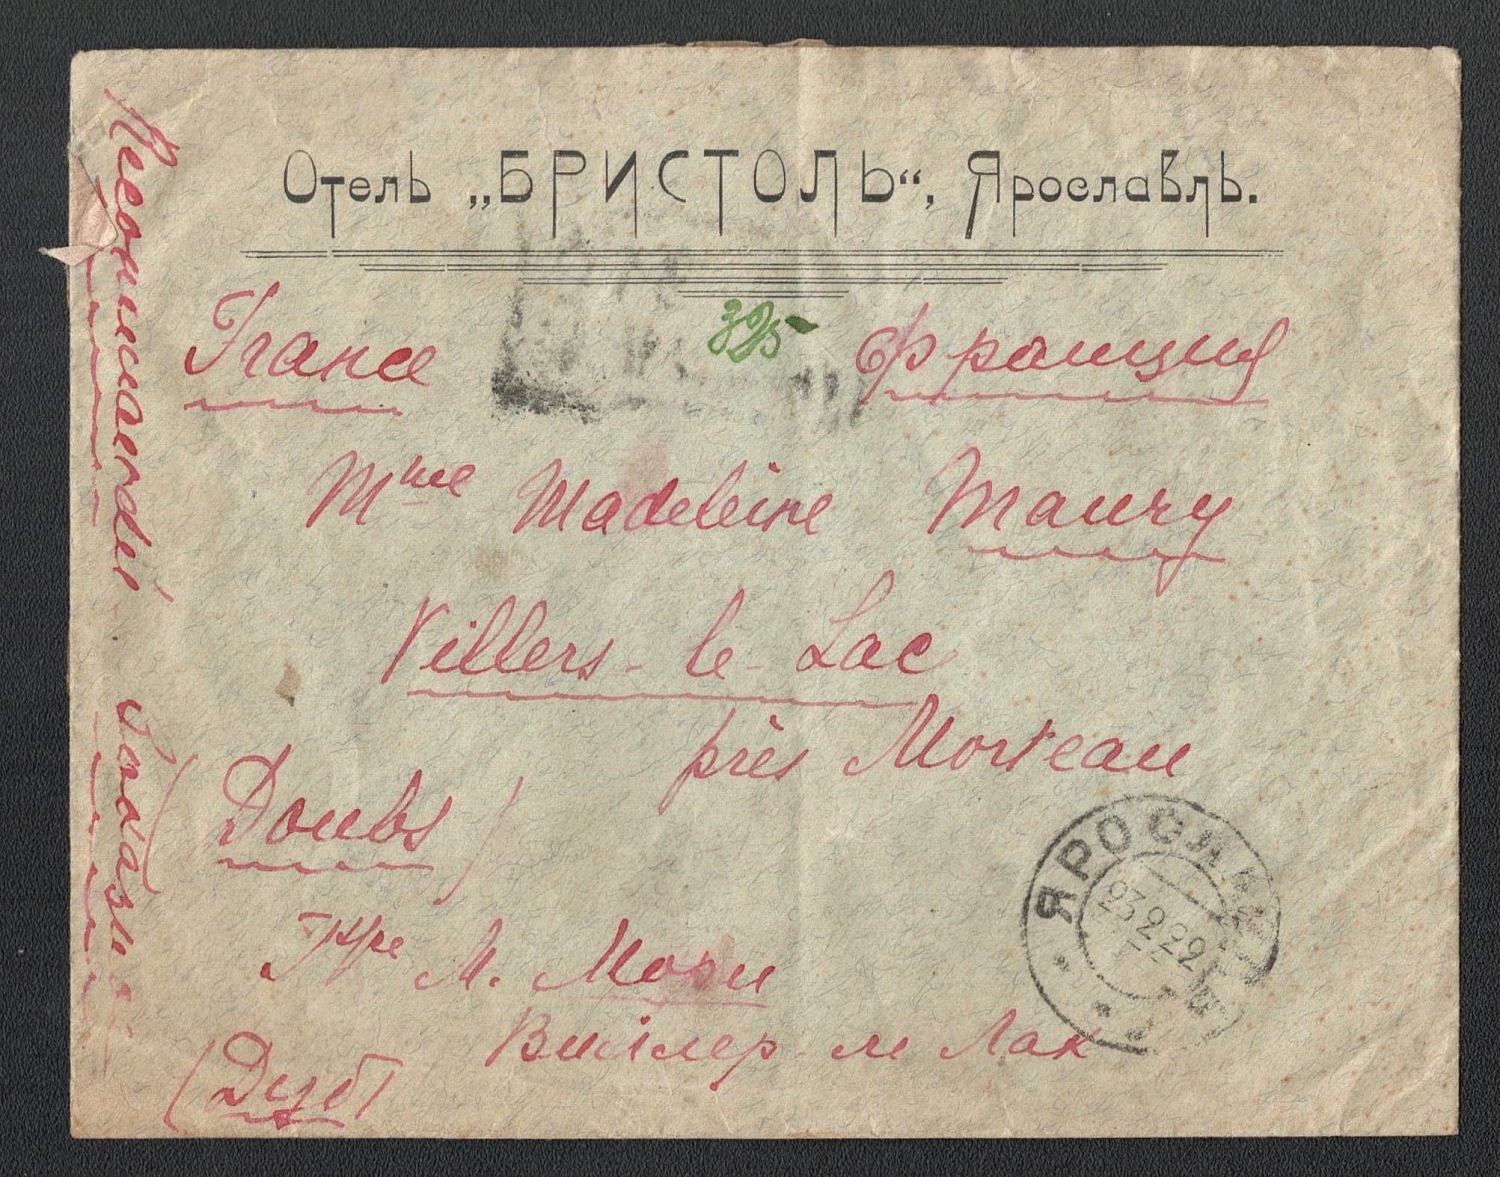 Отель „БРИСТОЛЬ“, Ярославль.
325
France Франция
Mme Madeleine Maury
Villers-le-Lac
près Morteau
(Doubs)
М. Мори
Виллер ле Лак
(Дубъ
Recommandé Заказное
ЯРОСЛАВЛЬ
23 2 22